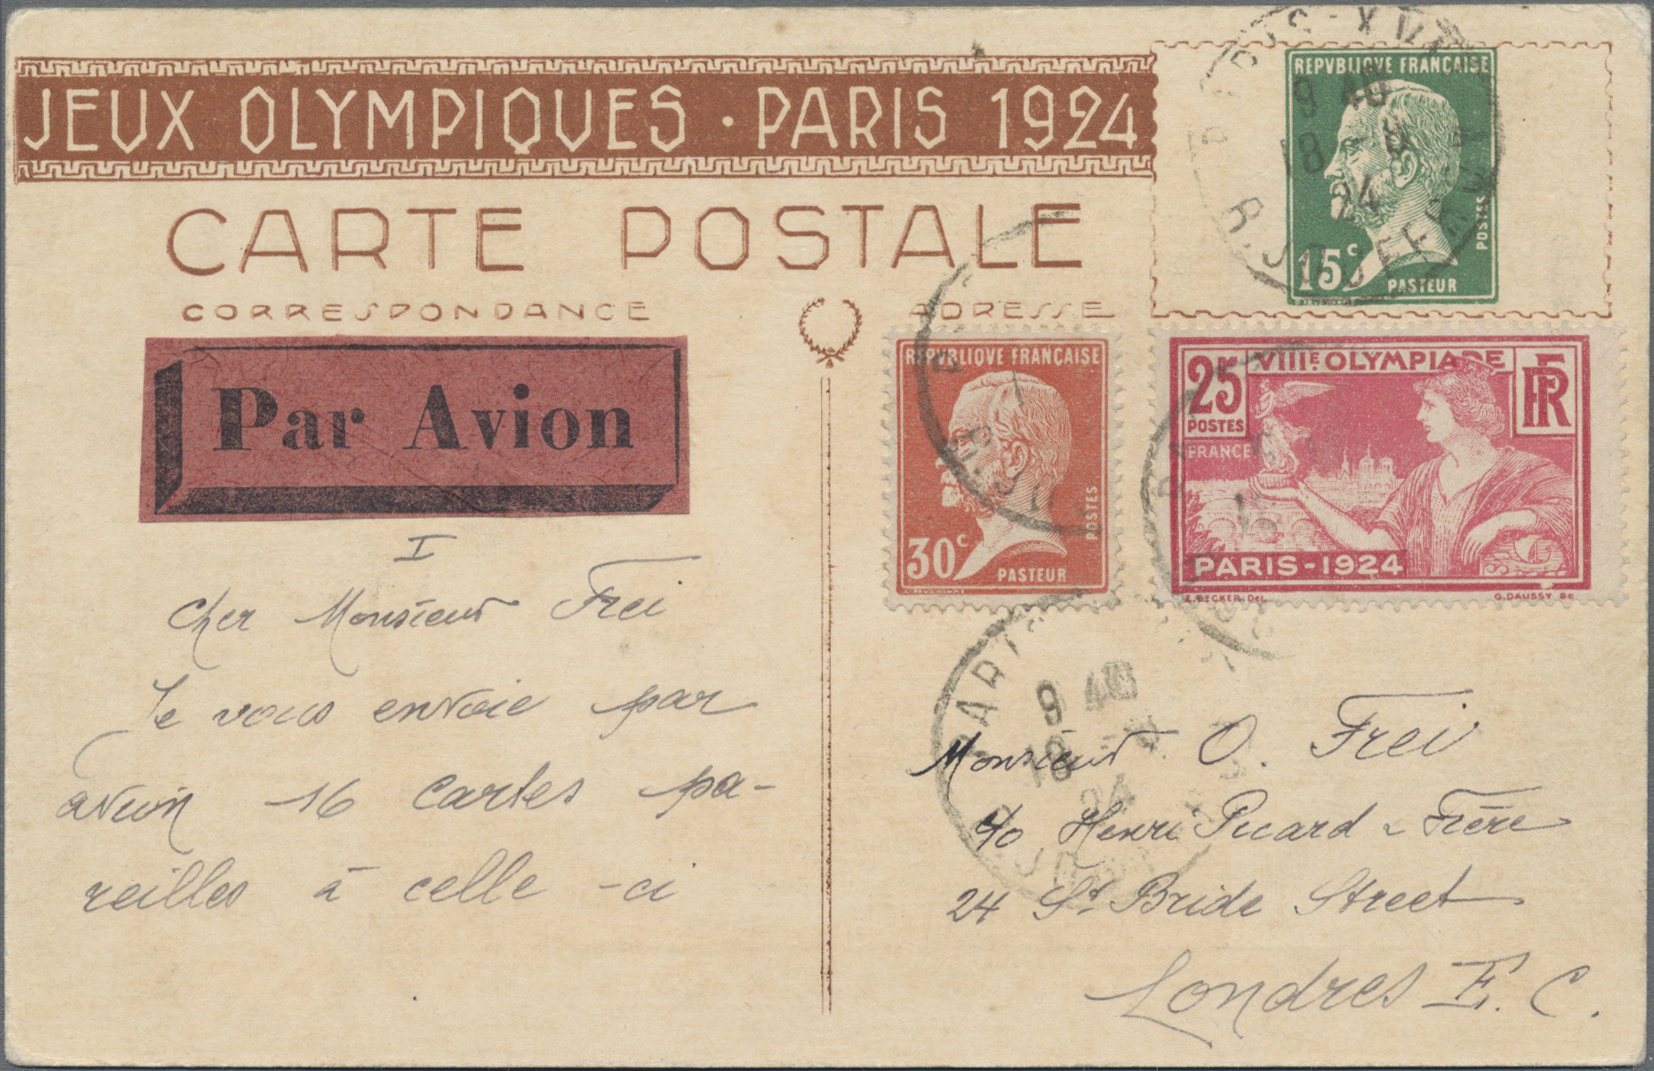 JEUX OLYMPIQUES · PARIS 1924
CARTE POSTALE
CORRESPONDANCE
ADRESSE
REPVBLIQVE FRANÇAISE
15c
POSTES
PASTEUR
9 40
18 - 8
24
Par Avion
REPVBLIQVE FRANÇAISE
30c
POSTES
PASTEUR
25
POSTES
VIIIE OLYMPIADE
RF
FRANCE
PARIS-1924
E. BECKER Del.
G. DAUSSY
I
Cher Monsieur Frei
Je vous envoie par
avion 16 cartes pa-
reilles à celle-ci
PARIS
9 40
18 - 8
24
Monsieur O. Frei
c/o Henri Picard & Frère
24 St. Bride Street
Londres E. C.